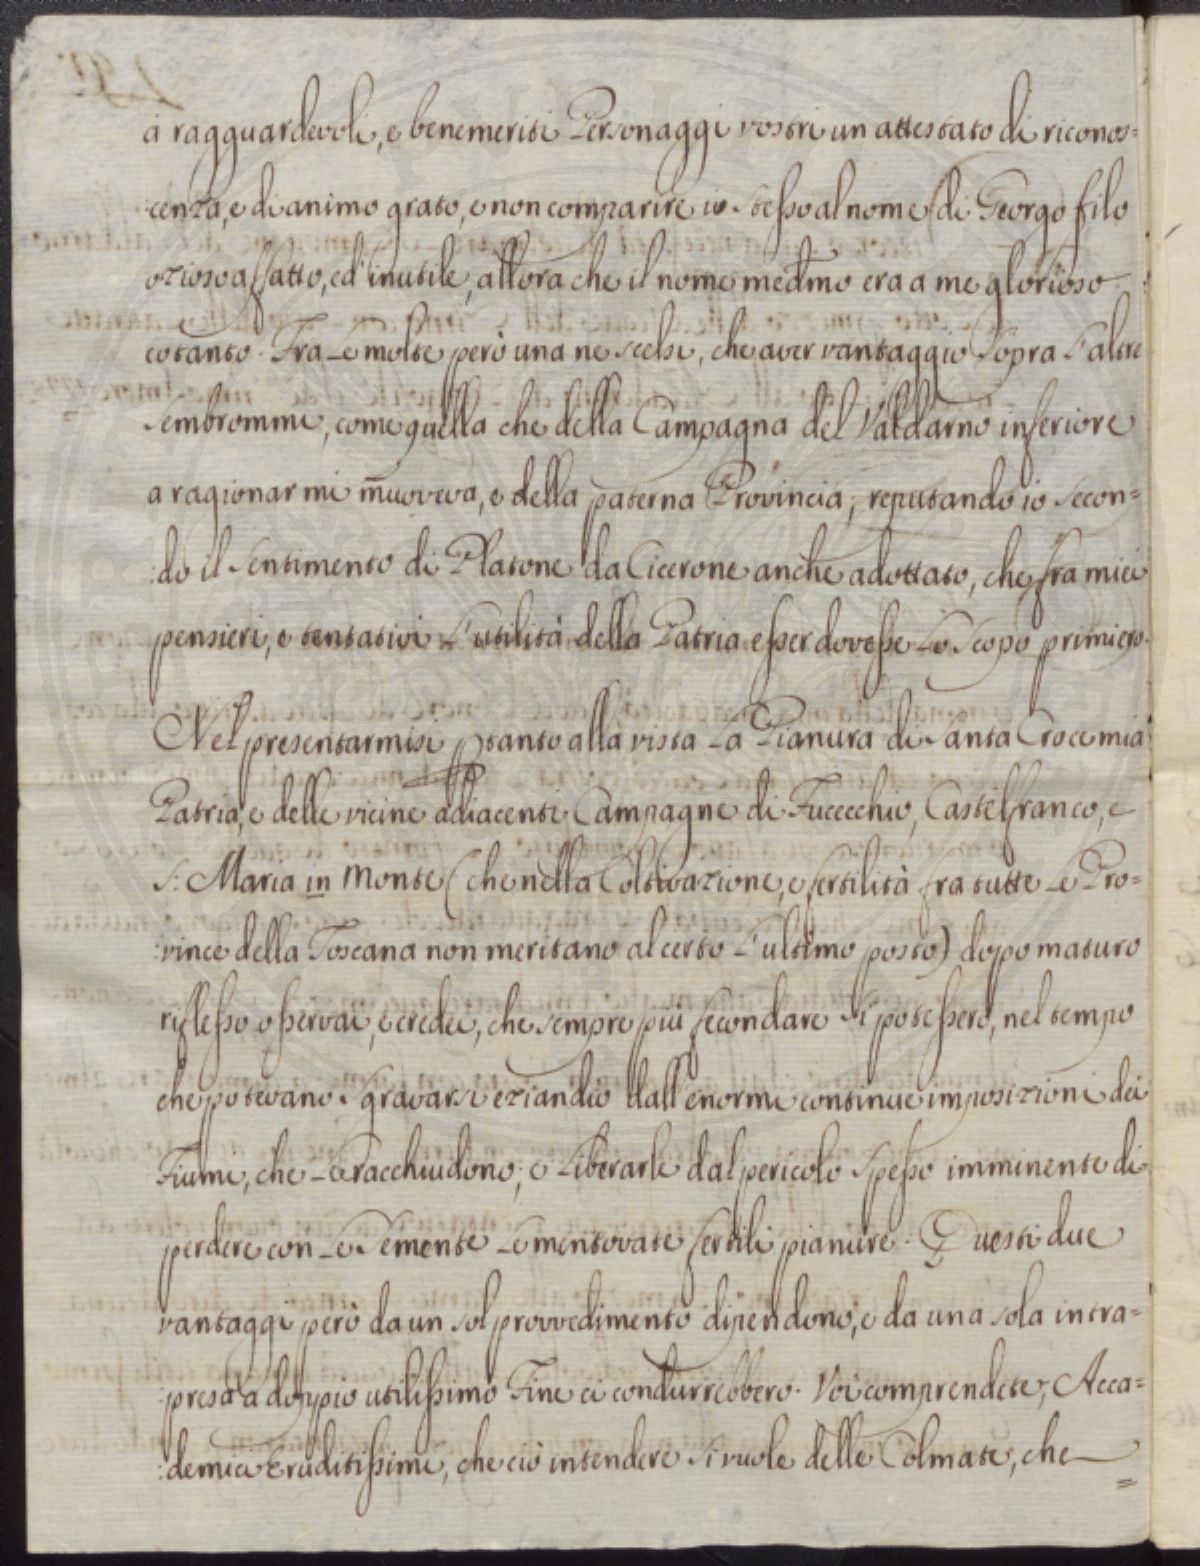 a ragguardevoli, e benemeriti Personaggi vostri un attestato di riconos=
:cenza, e di animo grato, e non comparire io stesso al nome di Georgofilo
ozioso affatto, ed' inutile, allora che il nome med.mo era a me glorioso
cotanto. Fra le molte però una ne scelsi, che aver vantaggio sopra l'altre
sembrommi, come quella che della Campagna del Valdarno inferiore
a ragionar mi muoveva, e della paterna Provincia; reputando io secon=
:do il sentimento di Platone da Cicerone anche adottato, che fra miei
pensieri, e tentativi l'utilità della Patria esser dovesse lo scopo primiero.
Nel presentarmisi ptanto alla vista la Pianura di Santa Croce mia
Patria, e delle vicine adiacenti Campagne di Fucecchio, Castelfranco, e
S: Maria in Monte (che nella Coltivazione, e fertilità fra tutte le Pro=
:vince della Toscana non meritano al certo l'ultimo posto) dopo maturo
riflesso osservai, e credei, che sempre più fecondare si potessero, nel tempo
che potevano sgravarsi eziandio dall'enormi continue imposizioni dei
Fiumi, che le racchiudono; e liberarle dal pericolo spesso imminente di
perdere con le semente le mentovate fertili pianure. Questi due
vantaggi però da un sol provvedimento dipendono, e da una sola intra=
:presa a doppio utilissimo Fine ci condurrebbero. Voi comprendete, Acca=
:demici Eruditissimi, che ciò intendere si vuole delle Colmate, che
=